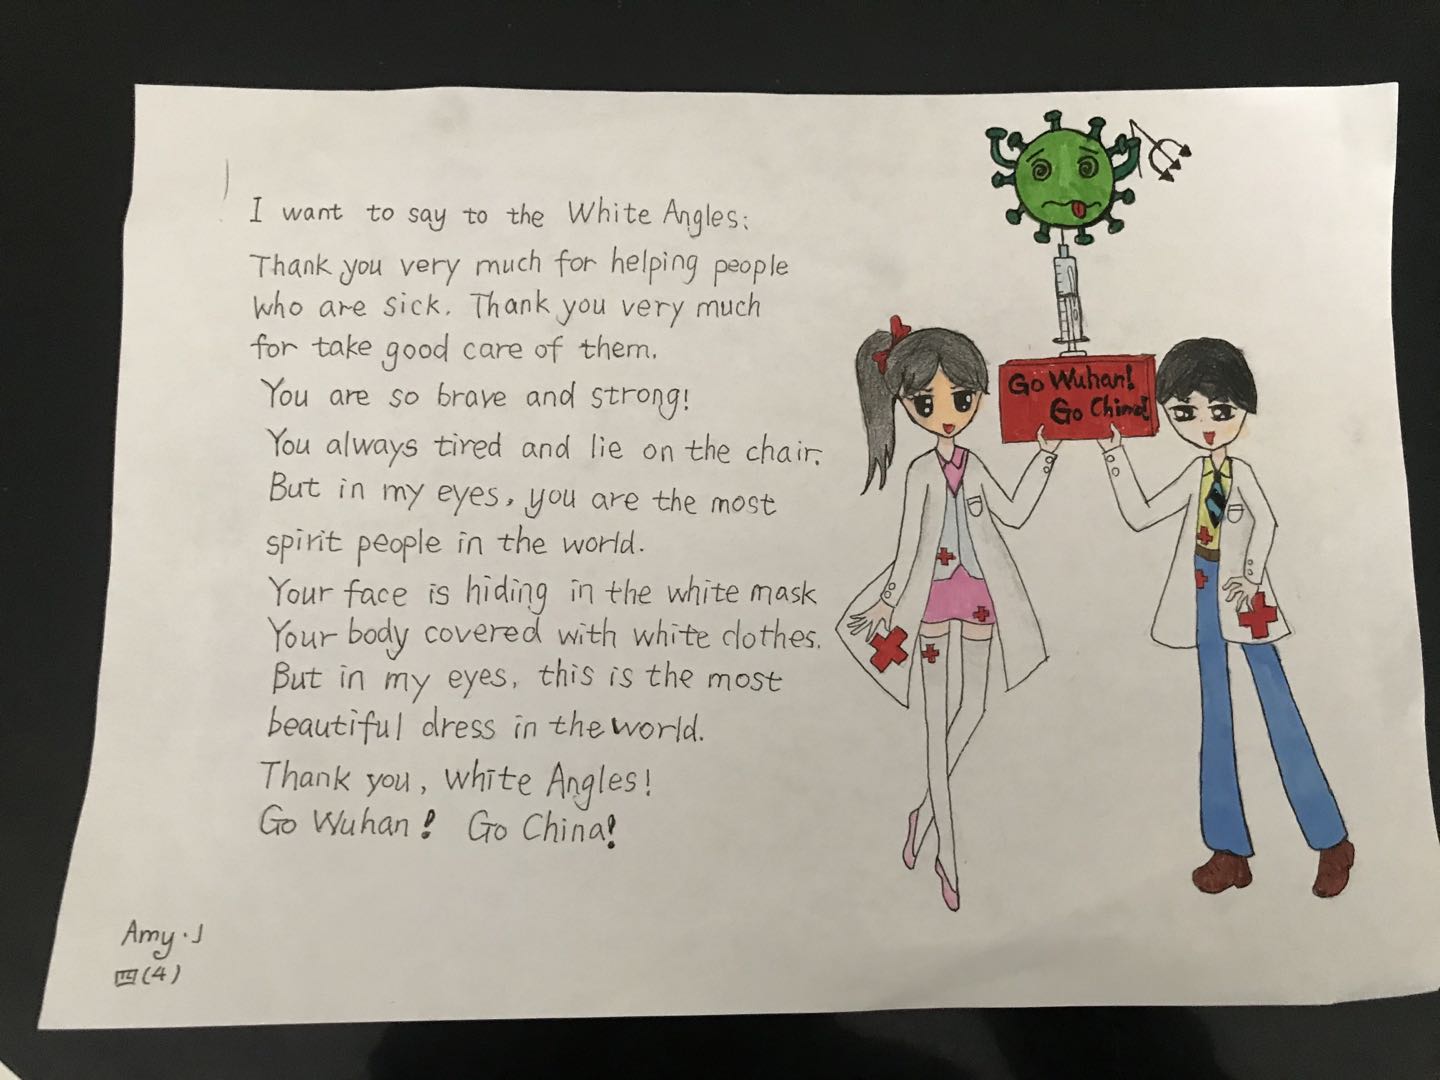 I want to say to the White Angles:
Thank you very much for helping people
who are sick. Thank you very much
for take good care of them.
You are so brave and strong!
You always tired and lie on the chair.
But in my eyes, you are the most
spirit people in the world.
Your face is hiding in the white mask
Your body covered with white clothes.
But in my eyes, this is the most
beautiful dress in the world.
Thank you, White Angles!
Go Wuhan! Go China!
Amy.J
四(4)
Go Wuhan!
Go China!